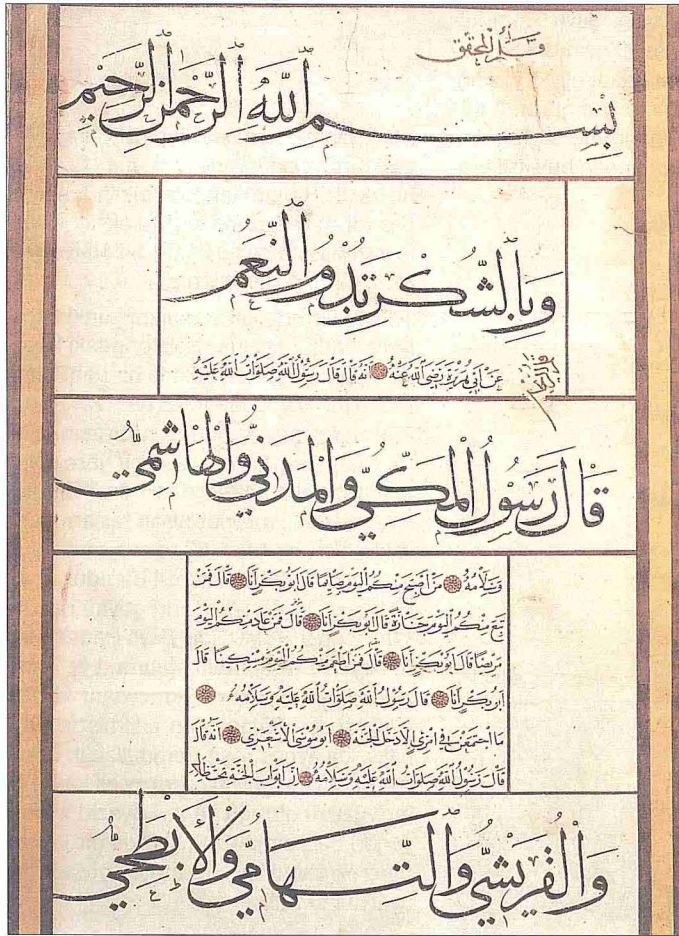 قلم المحقق
بِسْمِ اللَّهِ الرَّحْمٰنِ الرَّحِيمِ
وَبِالشُّكْرِ تَدُومُ النِّعَمُ
عَنْ أَبِي هُرَيْرَةَ رَضِيَ اللَّهُ عَنْهُ أَنَّهُ قَالَ قَالَ رَسُولُ اللَّهِ صَلَوَاتُ اللَّهِ عَلَيْهِ
قَالَ رَسُولُ الْمَكِّيِّ وَالْمَدَنِيِّ وَالْهَاشِمِيِّ
وَسَلَامُهُ مَنْ أَصْبَحَ مِنْكُمُ الْيَوْمَ صَائِمًا قَالَ أَبُو بَكْرٍ أَنَا قَالَ فَمَنْ
تَبِعَ مِنْكُمُ الْيَوْمَ جَنَازَةً قَالَ أَبُو بَكْرٍ أَنَا قَالَ فَمَنْ عَادَ مِنْكُمُ الْيَوْمَ
مَرِيضًا قَالَ أَبُو بَكْرٍ أَنَا قَالَ فَمَنْ أَطْعَمَ مِنْكُمُ الْيَوْمَ مِسْكِينًا قَالَ
أَبُو بَكْرٍ أَنَا قَالَ رَسُولُ اللَّهِ صَلَوَاتُ اللَّهِ عَلَيْهِ وَسَلَامُهُ
مَا اجْتَمَعْنَ فِي امْرِئٍ إِلَّا دَخَلَ الْجَنَّةَ أَبُو مُوسَى الْأَشْعَرِي أَنَّهُ قَالَ
قَالَ رَسُولُ اللَّهِ صَلَوَاتُ اللَّهِ عَلَيْهِ وَسَلَامُهُ إِنَّ أَبْوَابَ الْجَنَّةِ تَحْتَ ظِلَالِ
وَالْقُرَيْشِيِّ وَالتِّهَامِيِّ وَالْأَبْطَحِيِّ